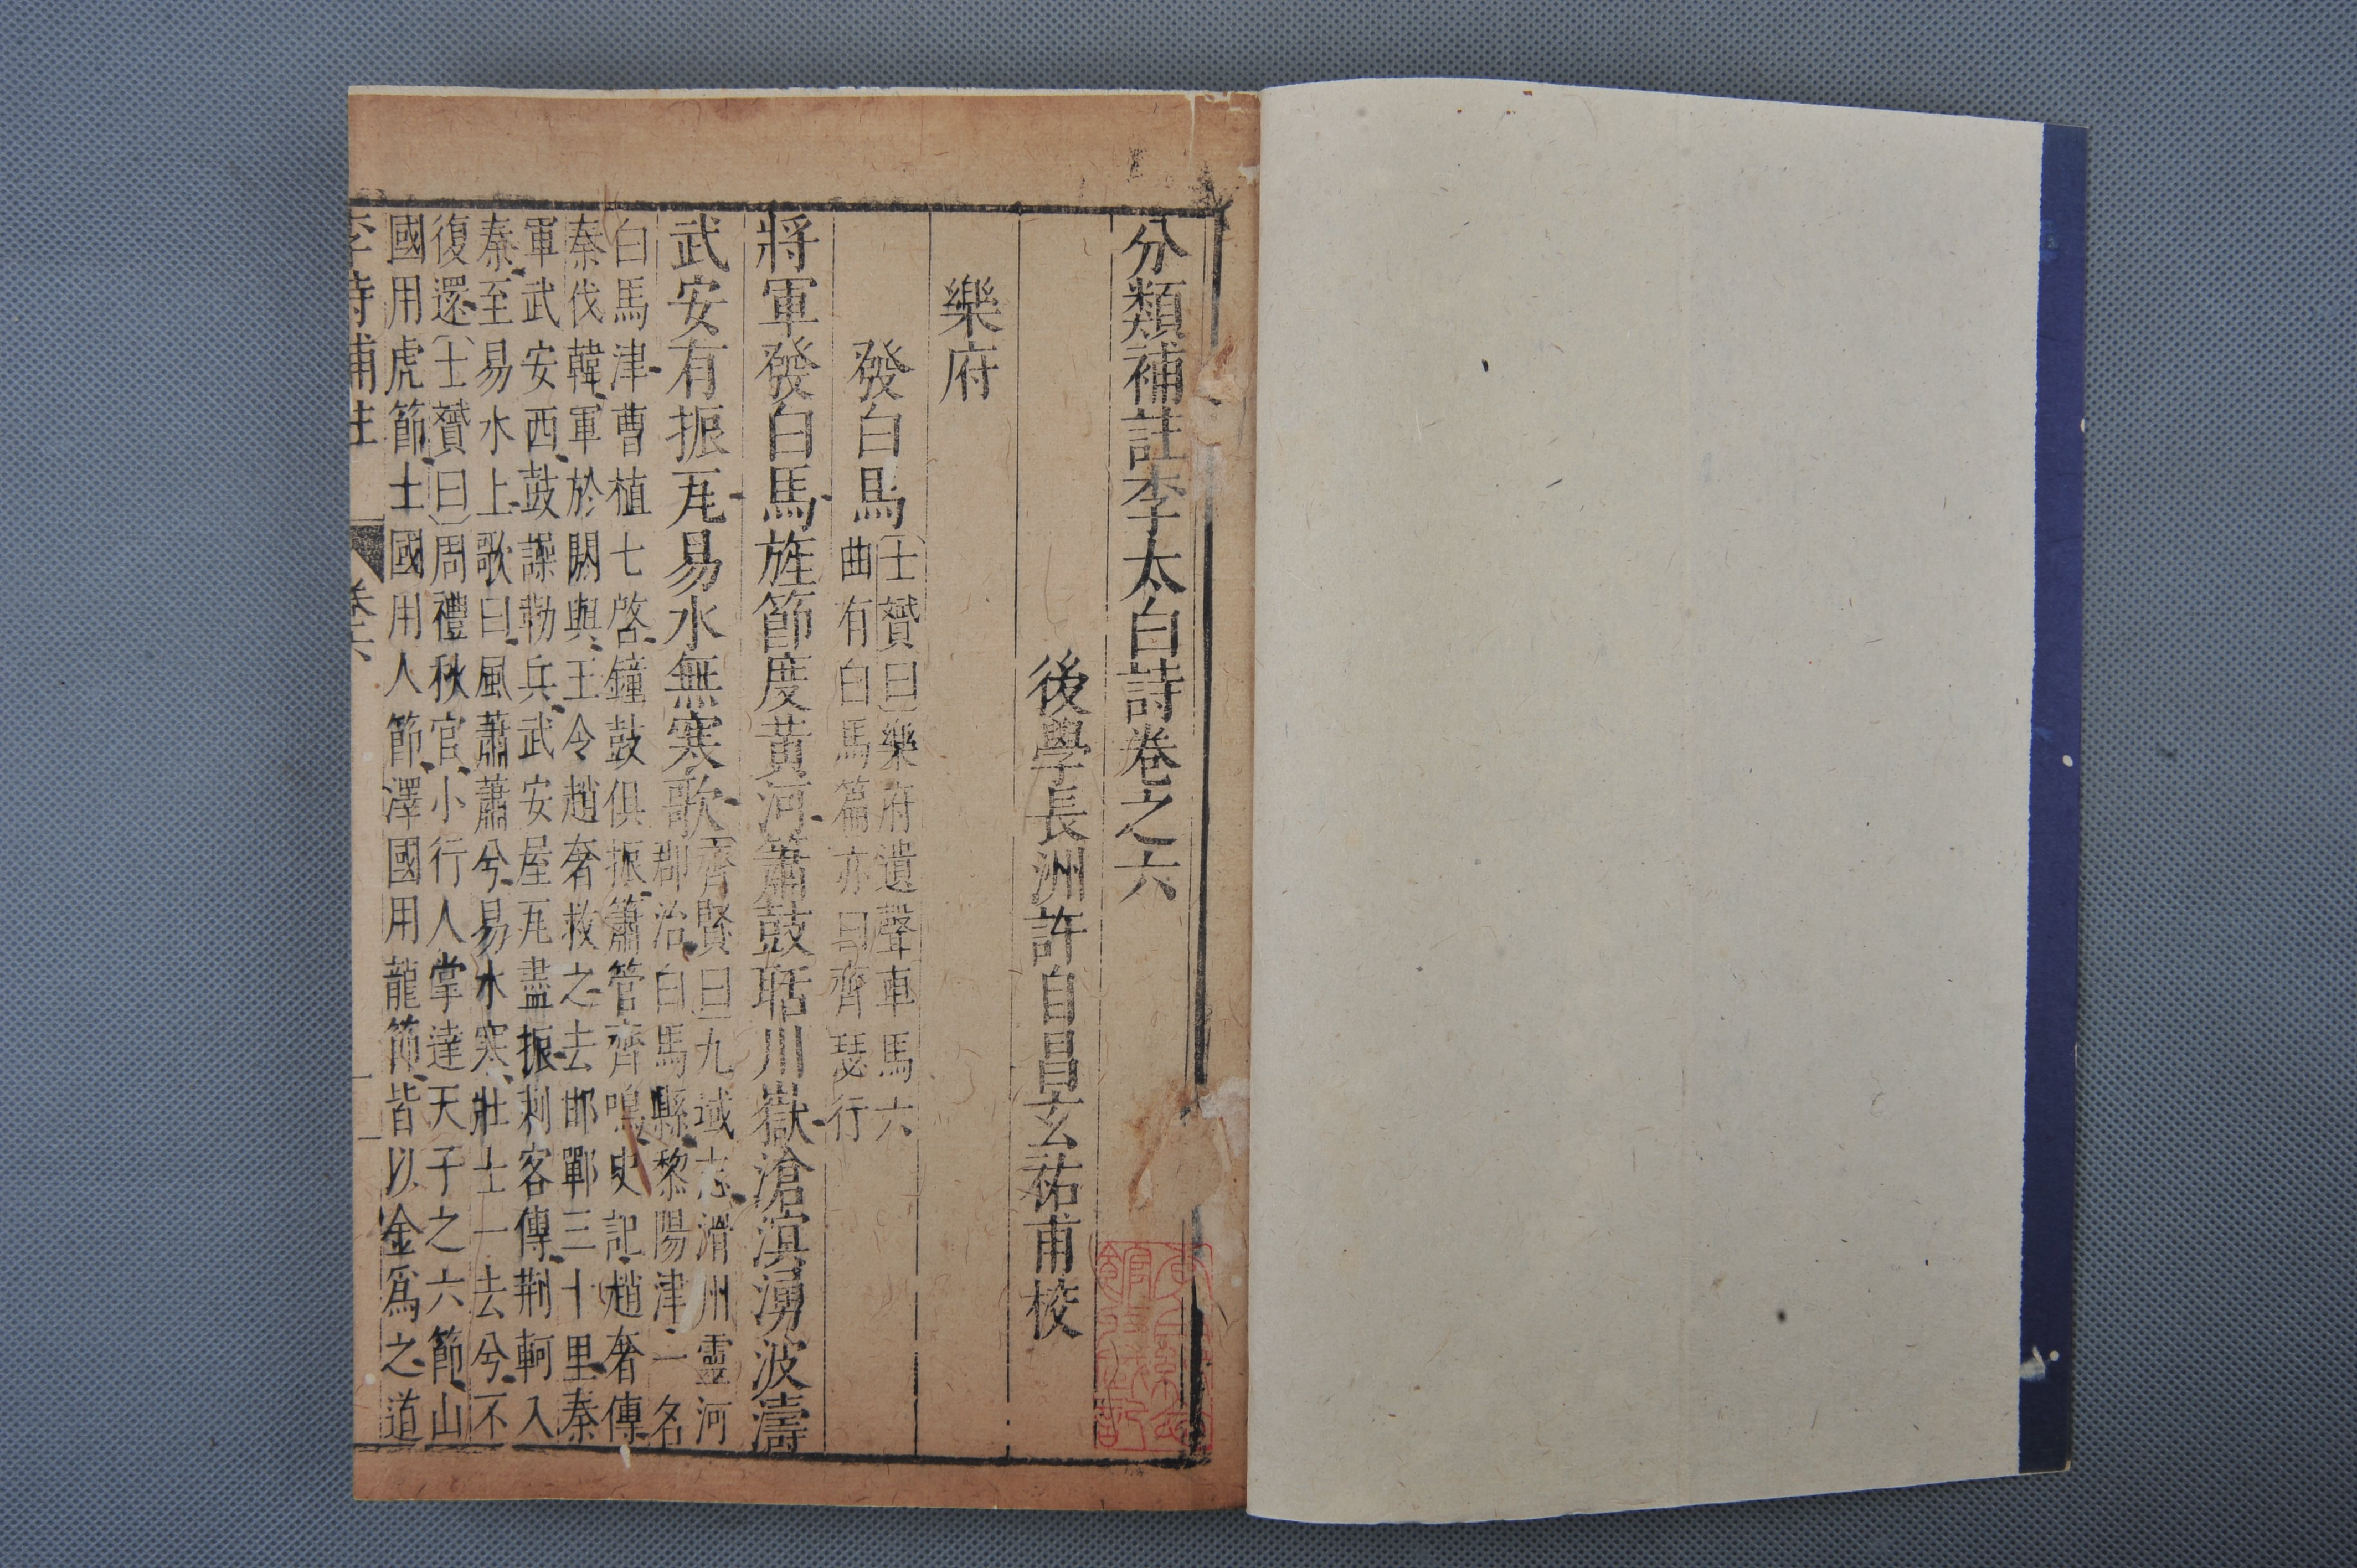 分類補註李太白詩卷之六
後學長洲許自昌玄祐甫校
樂府
發白馬
士贇曰樂府遺聲車馬六
曲有白馬篇亦曰齊瑟行
將軍發白馬旌節度黃河簫鼓聒川嶽滄溟湧波濤
武安有振瓦易水無寒歌
齊賢曰九域志滑州靈河
郡治白馬縣黎陽津一名
白馬津曹植七啓鐘鼓俱振簫管齊鳴史記趙奢傳
秦伐韓軍於閼與王令趙奢救之去邯鄲三十里秦
軍武安西鼓譟勒兵武安屋瓦盡振刺客傳荆軻入
秦至易水上歌曰風蕭蕭兮易水寒壯士一去兮不
復還士贇曰周禮秋官小行人掌達天子之六節山
國用虎節土國用人節澤國用龍節皆以金爲之道
李詩補註 卷六 一